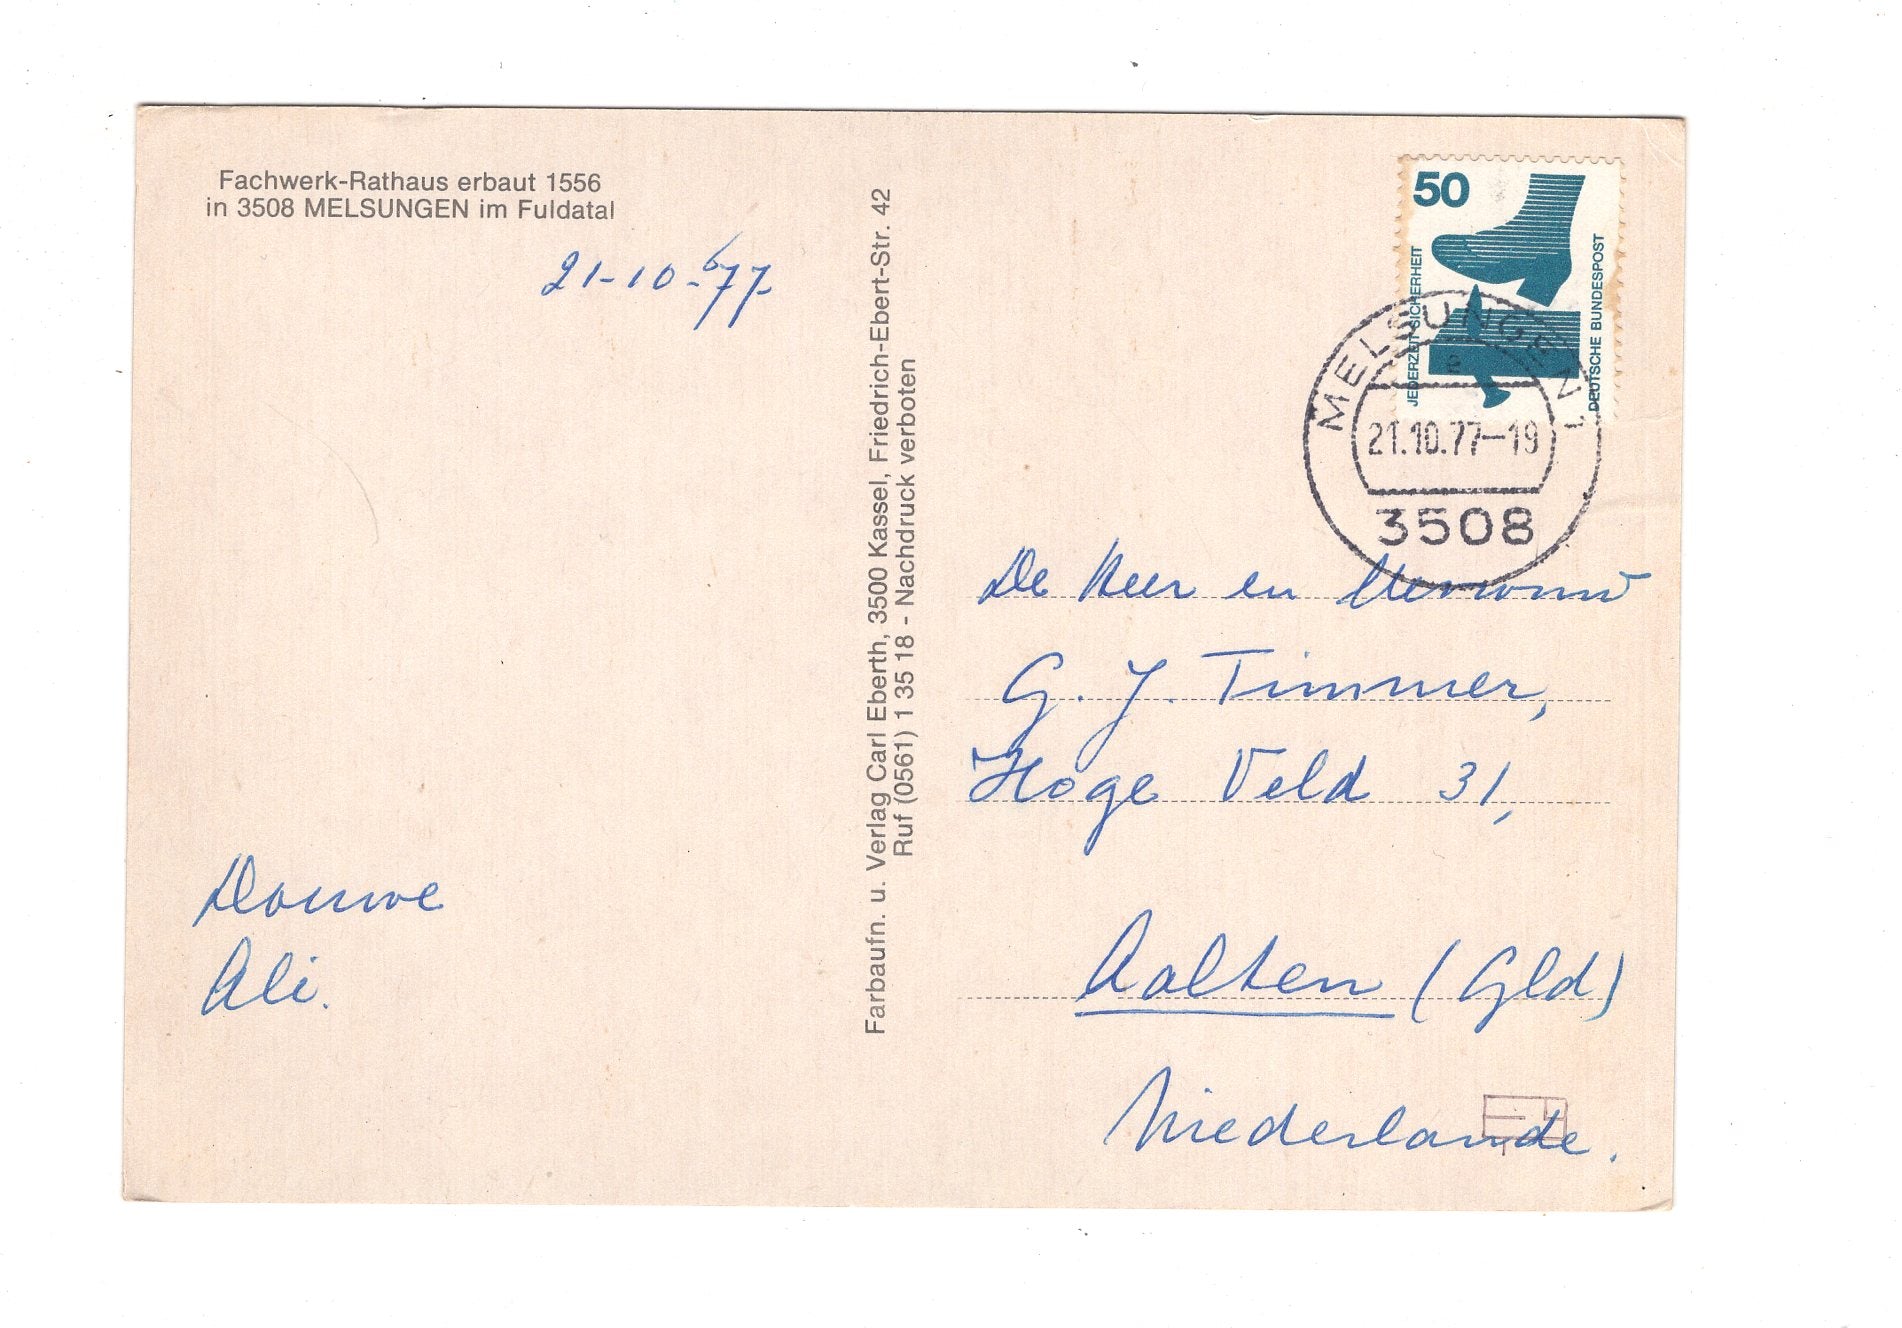 Fachwerk-Rathaus erbaut 1556
in 3508 MELSUNGEN im Fuldatal
21-10-'77-
Douwe
Ali.
Farbaufn. u. Verlag Carl Eberth, 3500 Kassel, Friedrich-Ebert-Str. 42
Ruf (0561) 1 35 18 - Nachdruck verboten
50
JEDERZEIT SICHERHEIT
DEUTSCHE BUNDESPOST
MELSUNGEN 1
a
21.10.77-19
3508
De Heer en Mevrouw
G. J. Timmer,
Hoge Veld 31,
Aalten (Gld)
Niederlande.